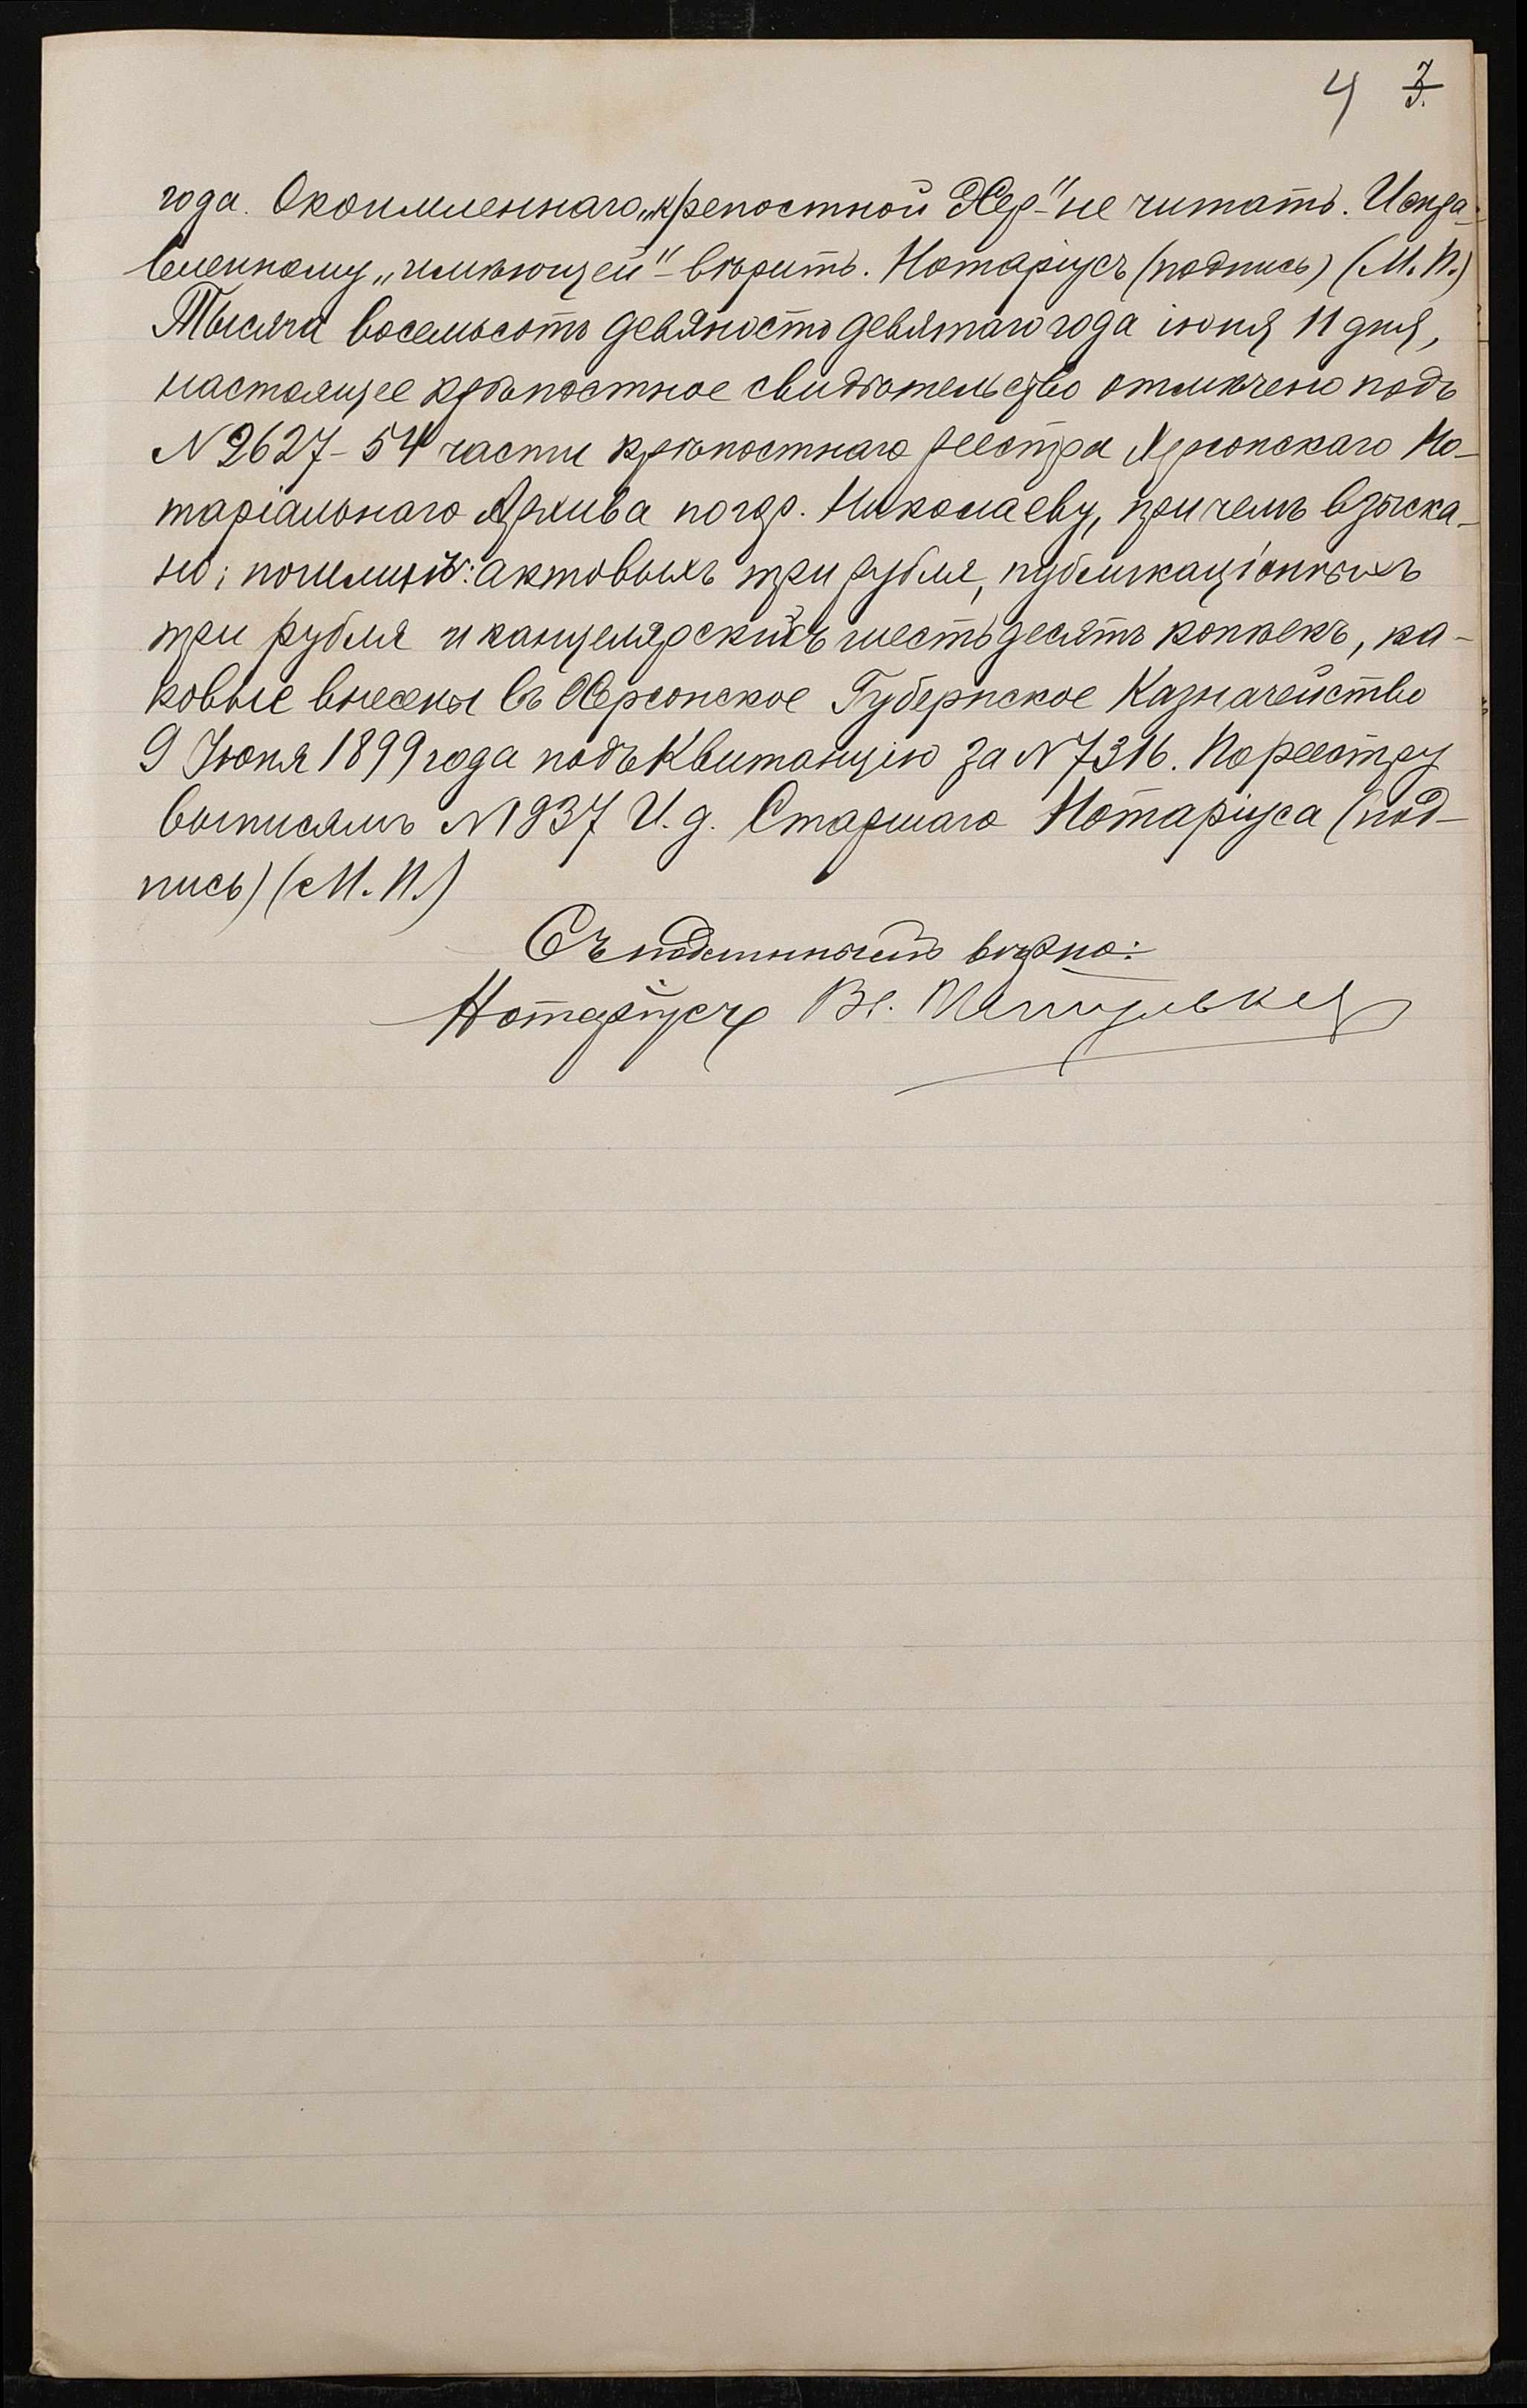 4 3.
года. Окоймленнаго „крепостной Хер-" не читать. Исправ-
вленному „имѣющей"- вѣрить. Нотаріусъ (подпись) (М. П.)
Тысяча восемьсотъ девяносто девятаго года іюня 11 дня,
настоящее крѣпостное свидѣтельство отмѣчено подъ
N 2627 - 54 части крѣпостнаго реестра Херсонскаго Но-
таріальнаго Архива по гор. Николаеву, при чемъ взыска-
но; пошлинъ: актовыхъ три рубля, публикаціонныхъ
три рубля и канцелярскихъ шестьдесятъ копѣекъ, ка-
ковые внесены въ Херсонское Губернское Казначейство
9 Іюня 1899 года подъ квитанцію за N 7316. По реестру
выписямъ N 1837 И. д. Старшаго Нотаріуса (под-
пись) (М. П.)
Съ подлиннымъ вѣрно:
Нотаріусъ Вл.